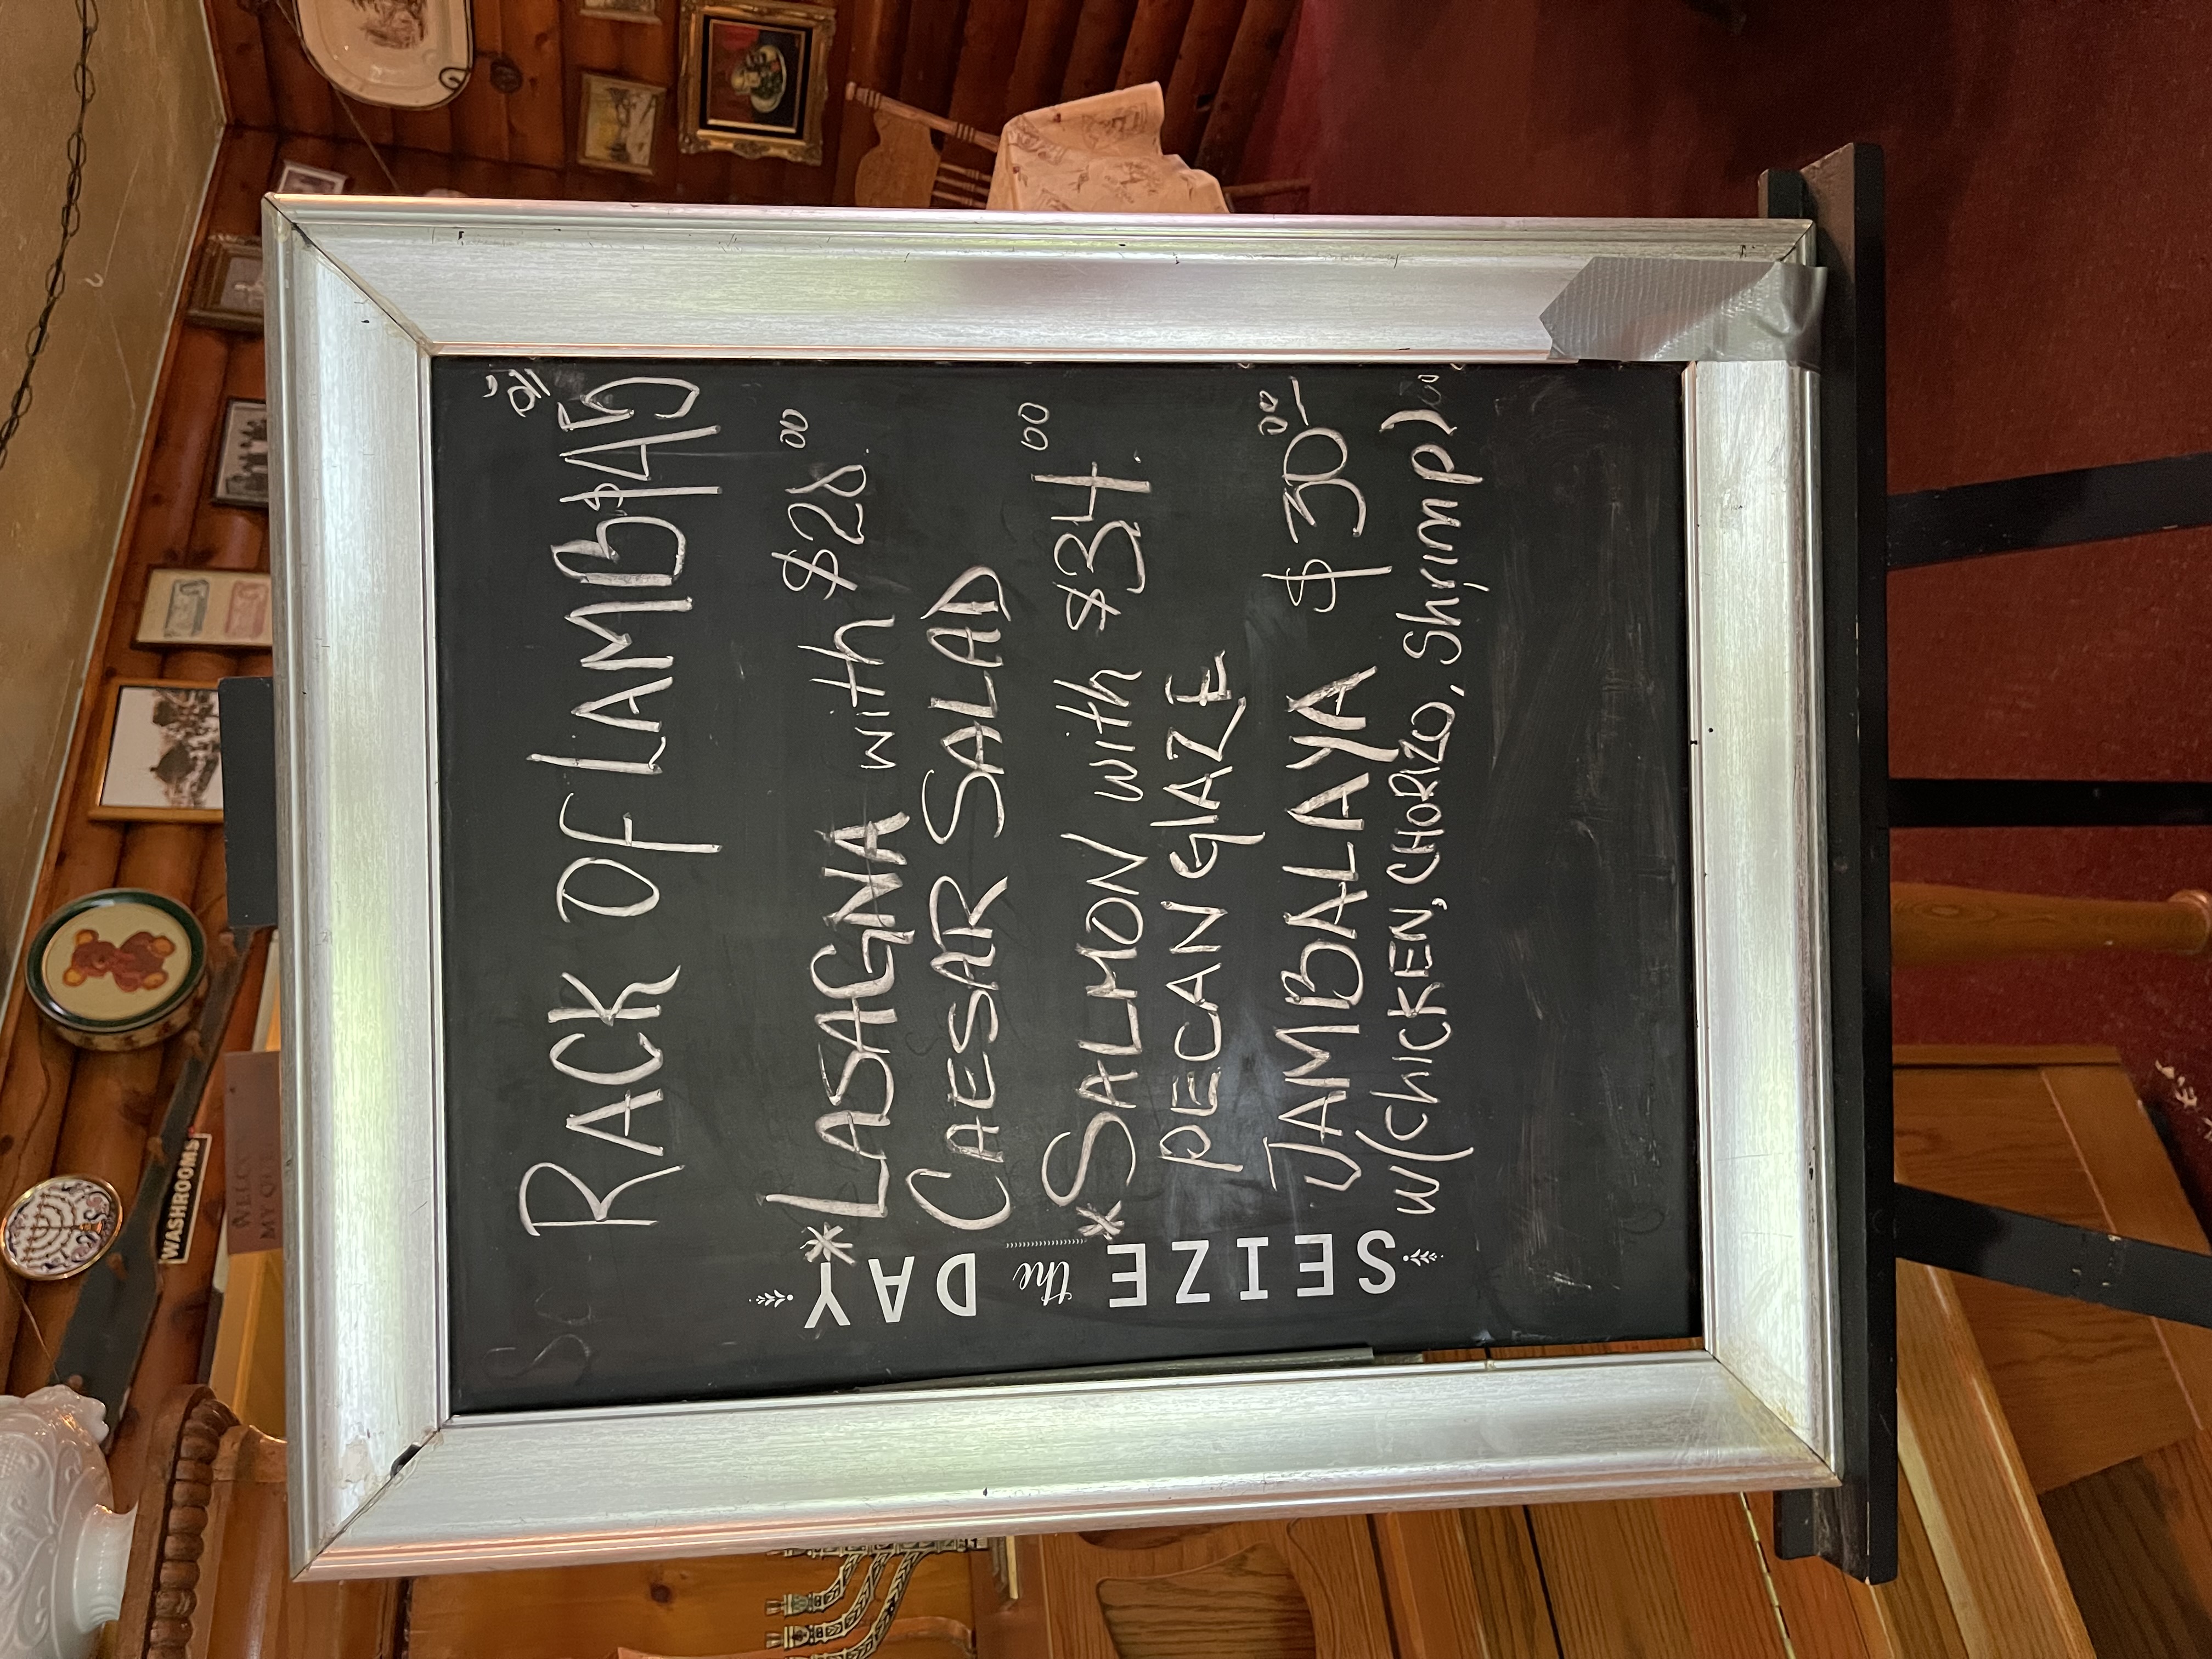 WASHROOMS
RACK OF LAMB $45
*LASAGNA with $28.00
CAESAR SALAD
*SALMON with $34.00
PECAN GLAZE
JAMBALAYA $30 00
w/(CHICKEN, CHORIZO, Shrimp)
SEIZE the DAY